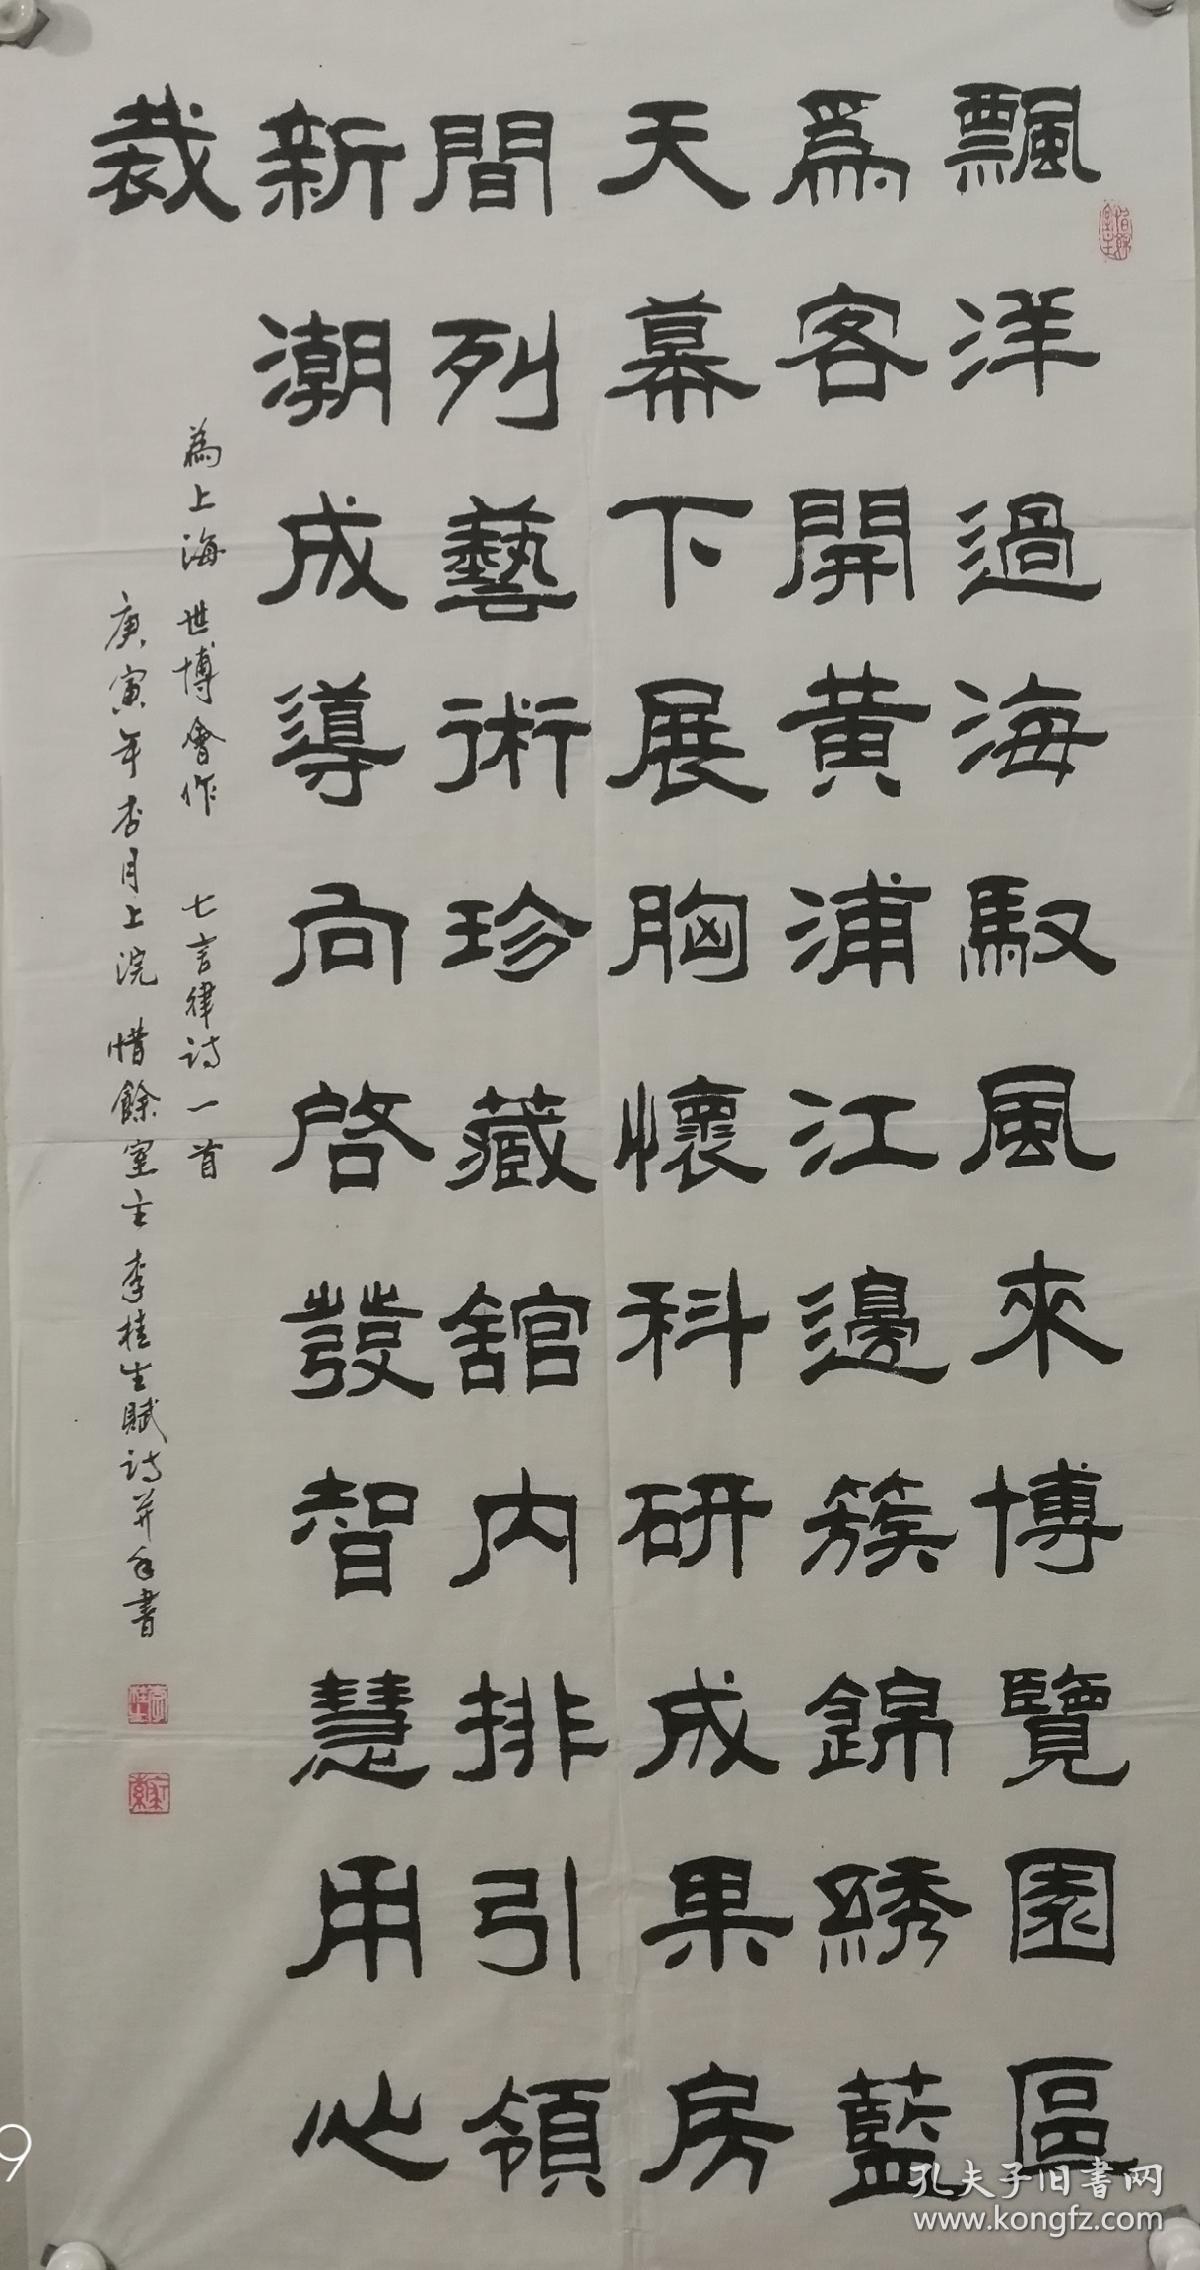 飄洋過海馭風來博覽園區
為客開黃浦江邊簇錦綉藍
天幕下展胸懷科研成果房
間列藝術珍藏舘內排引領
新潮成導向啓發智慧用心
裁
為上海世博會作 七言律詩一首
庚寅年杏月上浣 惜餘室主李桂生賦詩并書
孔夫子旧书网
www.kongfz.com